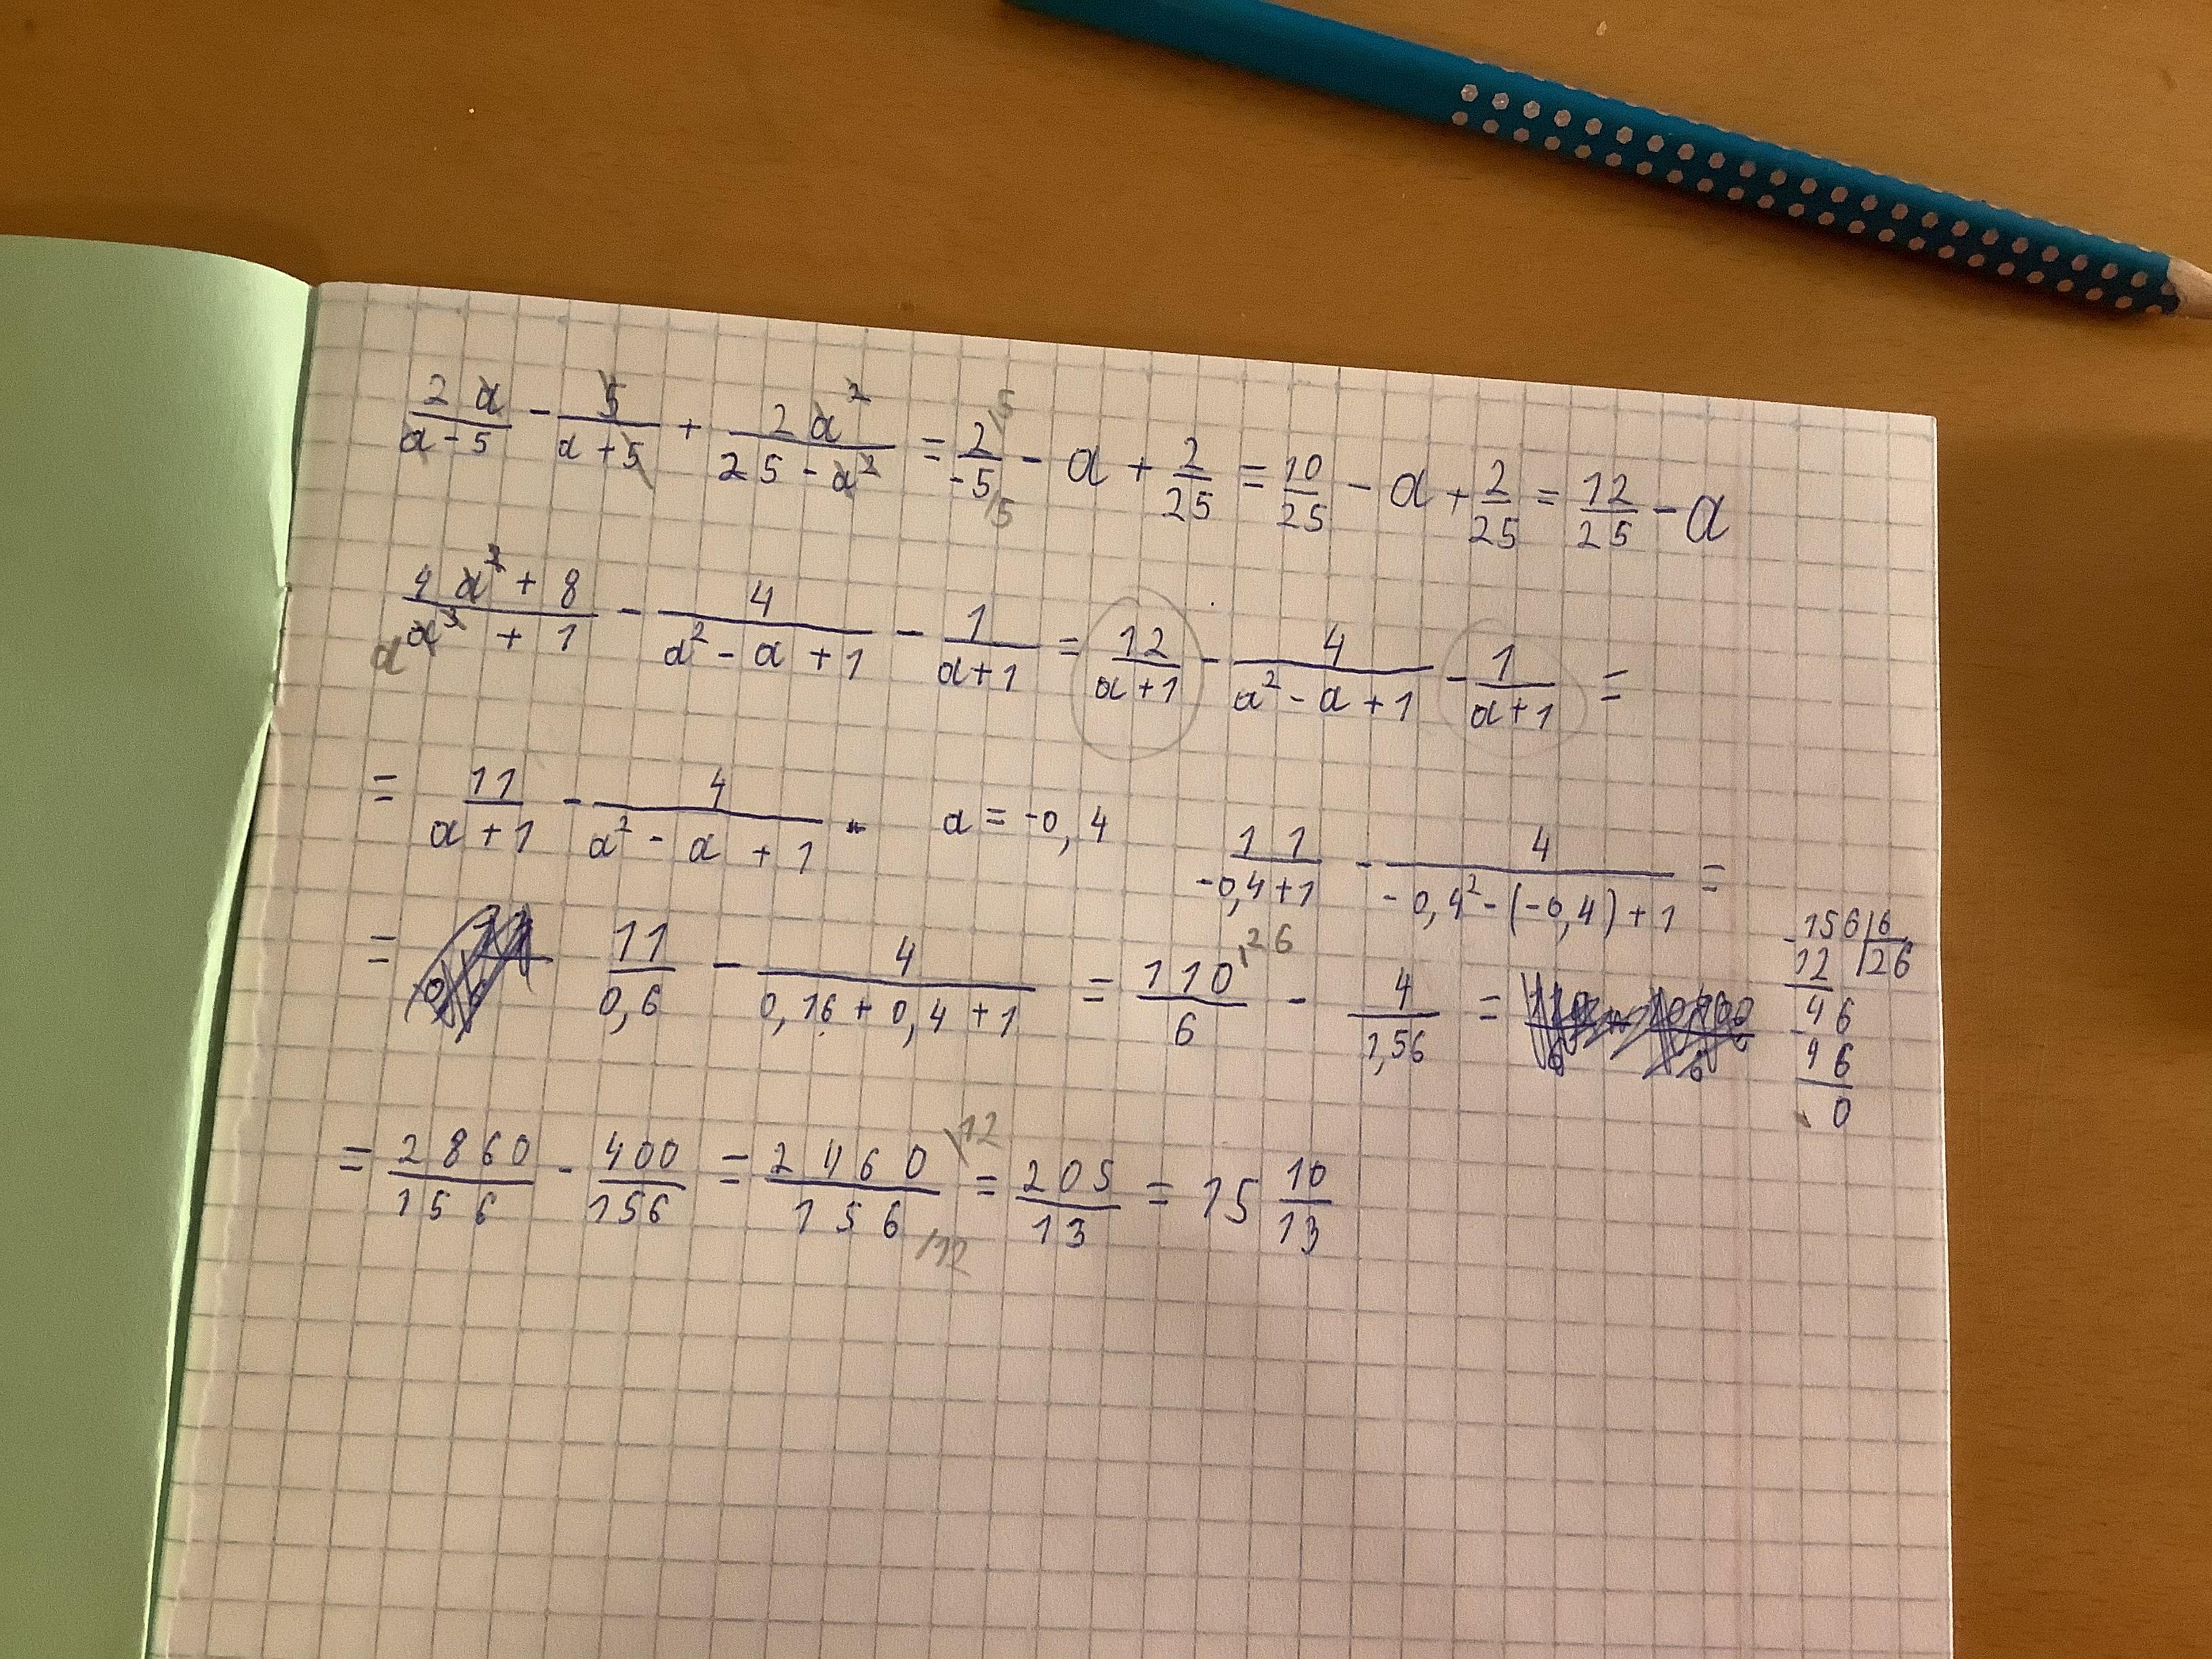 2a/(a-5) - 5/(a+5) + 2a²/(25-a²) = 2\5/-5/5 - a + 2/25 = 10/25 - a + 2/25 = 12/25 - a
(4a²+8)/(a³+1) a - 4/(a²-a+1) - 1/(a+1) = 12/(a+1) - 4/(a²-a+1) - 1/(a+1) =
= 11/(a+1) - 4/(a²-a+1) a = -0,4 11/(-0,4+1) - 4/(-0,4²-(-0,4)+1) =
= 11/0,6 - 4/(0,16+0,4+1) = 110\26/6 - 4/1,56 =
-156|6
12 |26
- 46
46
0
= 2860/156 - 400/156 = 2460\12/156/12 = 205/13 = 15 10/13